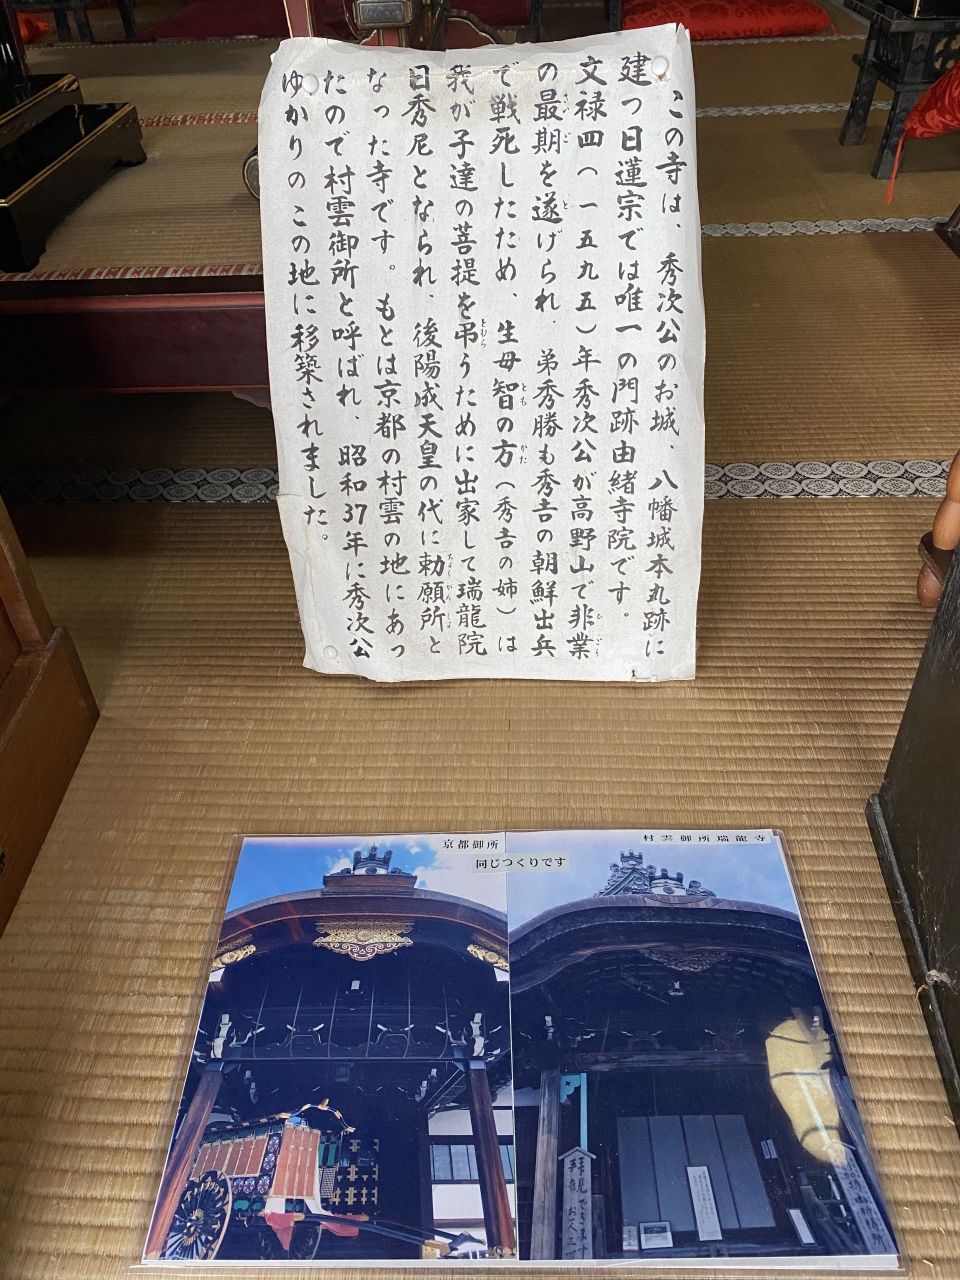 この寺は、秀次公のお城、八幡城本丸跡に
建つ日蓮宗では唯一の門跡由緒寺院です。
文禄四(一五九五)年秀次公が高野山で非業
の最期を遂げられ、弟秀勝も秀吉の朝鮮出兵
で戦死したため、生母智の方(秀吉の姉)は
我が子達の菩提を弔うために出家して瑞龍院
日秀尼となられ、後陽成天皇の代に勅願所と
なった寺です。もとは京都の村雲の地にあっ
たので村雲御所と呼ばれ、昭和37年に秀次公
ゆかりのこの地に移築されました。
京都御所
村雲御所瑞龍寺
同じつくりです
拝観できます